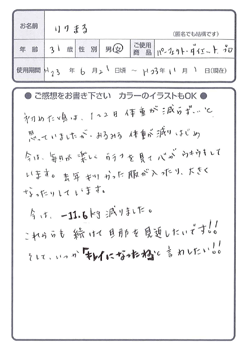 お名前 りりまる
(匿名でも結構です)
年齢 31歳 性別 男・女 ご使用商品 パーフェクト・ダイエット プロ
使用期間 H23年6月21日頃～H23年11月1日(現在)
●ご感想をお書き下さい カラーのイラストもOK●
初めた頃は、1、2日体重が減らず…と
思っていましたが、みるみる体重が減りはじめ
今は、毎日が楽しい
います。去年キツかった服が入ったり、大きく
なったりしています。
今は、-11.6kg減りました。
これからも続けて旦那を見返したいです!!
そして、いつか「キレイになったね」と言わしたい!!